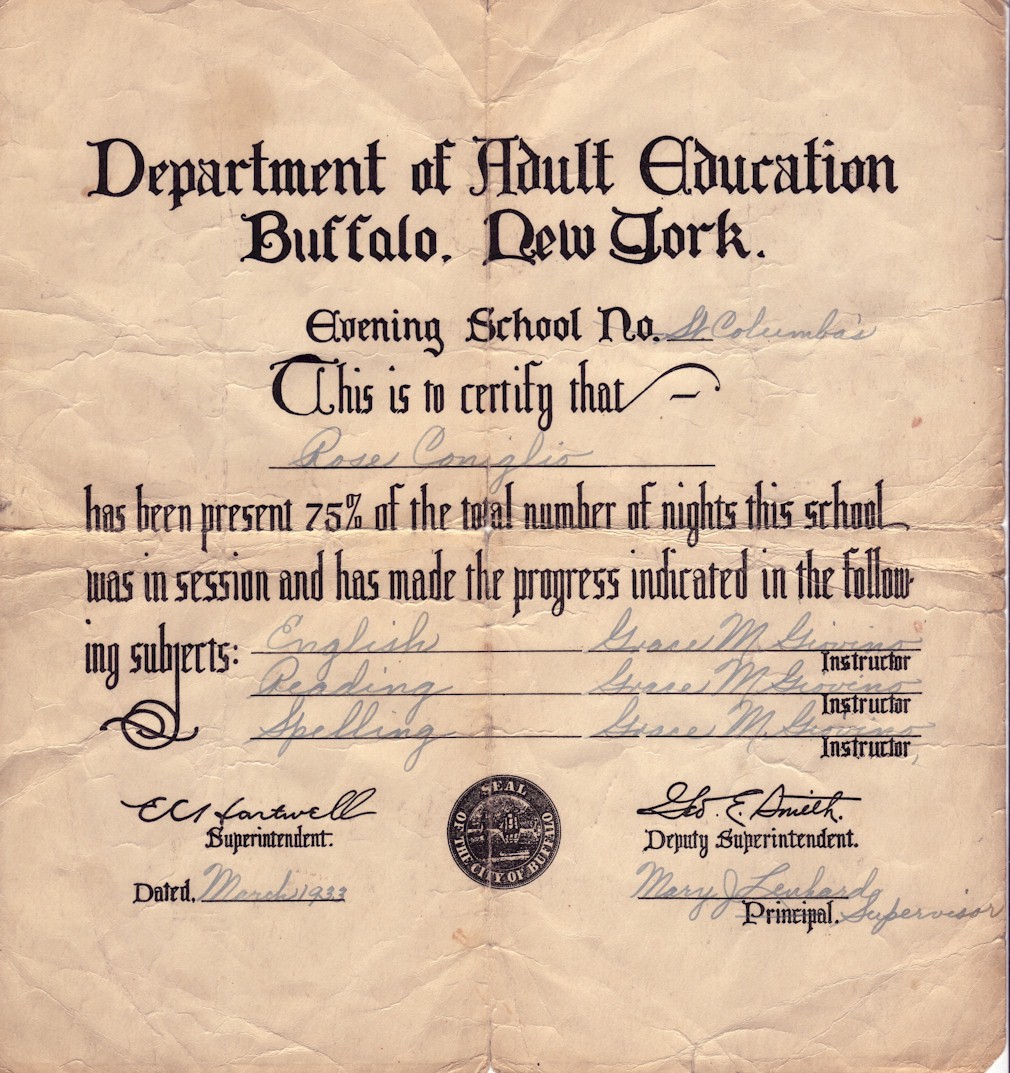 Department of Adult Education
Buffalo, New York.
Evening School No. St. Columba's
This is to certify that —
Rose Coniglio
has been present 75% of the total number of nights this school
was in session and has made the progress indicated in the follow-
ing subjects: English Grace M. Giovino
Instructor
Reading Grace M. Giovino
Instructor
Spelling Grace M. Giovino
Instructor,
E C Hartwell Geo. E. Smith.
Superintendent. Deputy Superintendent.
SEAL OF THE CITY OF BUFFALO
Dated, March 1933 Mary J Lenhardy
Principal. Supervisor